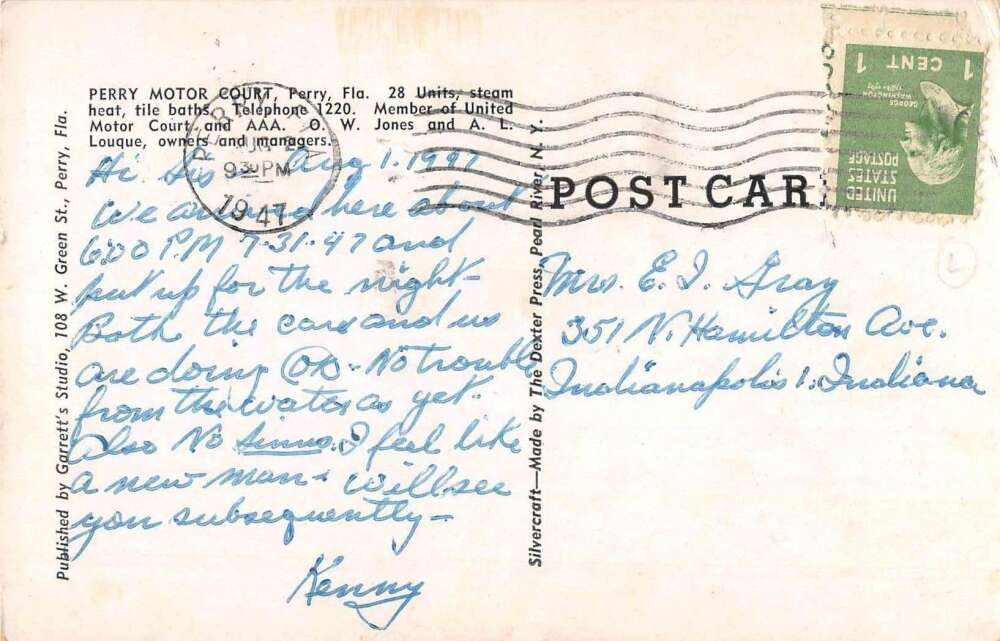 PERRY MOTOR COURT, Perry, Fla. 28 Units, steam
heat, tile baths. Telephone 1220. Member of United
Motor Court and AAA. O. W. Jones and A. L.
Louque, owners and managers.
Hi Sis Aug 1. 1947
We arrived here about
6:00 P.M 7-31-47 and
put up for the night-
Both the cars and us
are doing OK. No trouble
from the water as yet.
Also No Sinus. I feel like
a new man. Will see
you subsequently-
Kenny
Published by Garrett's Studio, 108 W. Green St., Perry, Fla.
Silvercraft—Made by The Dexter Press, Pearl River, N. Y.
PERRY
930 PM
1947
POST CAR
Mrs. E. I. Gray
351 N. Hamilton Ave.
Indianapolis 1. Indiana
1 CENT 1
GEORGE
WASHINGTON
UNITED
STATES
POSTAGE
L